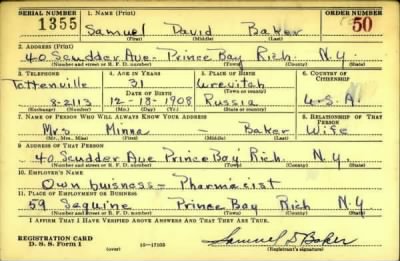 SERIAL NUMBER 1. NAME (Print) ORDER NUMBER
1355 Samuel David Baker 50
(First) (Middle) (Last)
2. ADDRESS (Print)
40 Scudder Ave. Prince Bay Rich. N.Y.
(Number and street or R. F. D. number) (Town) (County) (State)
3. TELEPHONE 4. AGE IN YEARS 5. PLACE OF BIRTH 6. COUNTRY OF CITIZENSHIP
Tottenville 31
DATE OF BIRTH (Town) (County)
8-2113 12-18-1908 Russia U.S.A.
(Exchange) (Number) (Mo.) (Day) (Yr.) (State or country)
7. NAME OF PERSON WHO WILL ALWAYS KNOW YOUR ADDRESS 8. RELATIONSHIP OF THAT PERSON
Mrs Minna — Baker Wife
(Mr., Mrs., Miss) (First) (Middle) (Last)
9. ADDRESS OF THAT PERSON
40 Scudder Ave Prince Bay Rich. N.Y.
(Number and street or R. F. D. number) (Town) (County) (State)
10. EMPLOYER'S NAME
Own business - Pharmacist
11. PLACE OF EMPLOYMENT OR BUSINESS
59 Seguine Prince Bay Rich N.Y
(Number and street or R. F. D. number) (Town) (County) (State)
I AFFIRM THAT I HAVE VERIFIED ABOVE ANSWERS AND THAT THEY ARE TRUE.
REGISTRATION CARD
D. S. S. Form 1 (over) 16—17105 Samuel D Baker
(Registrant's signature)